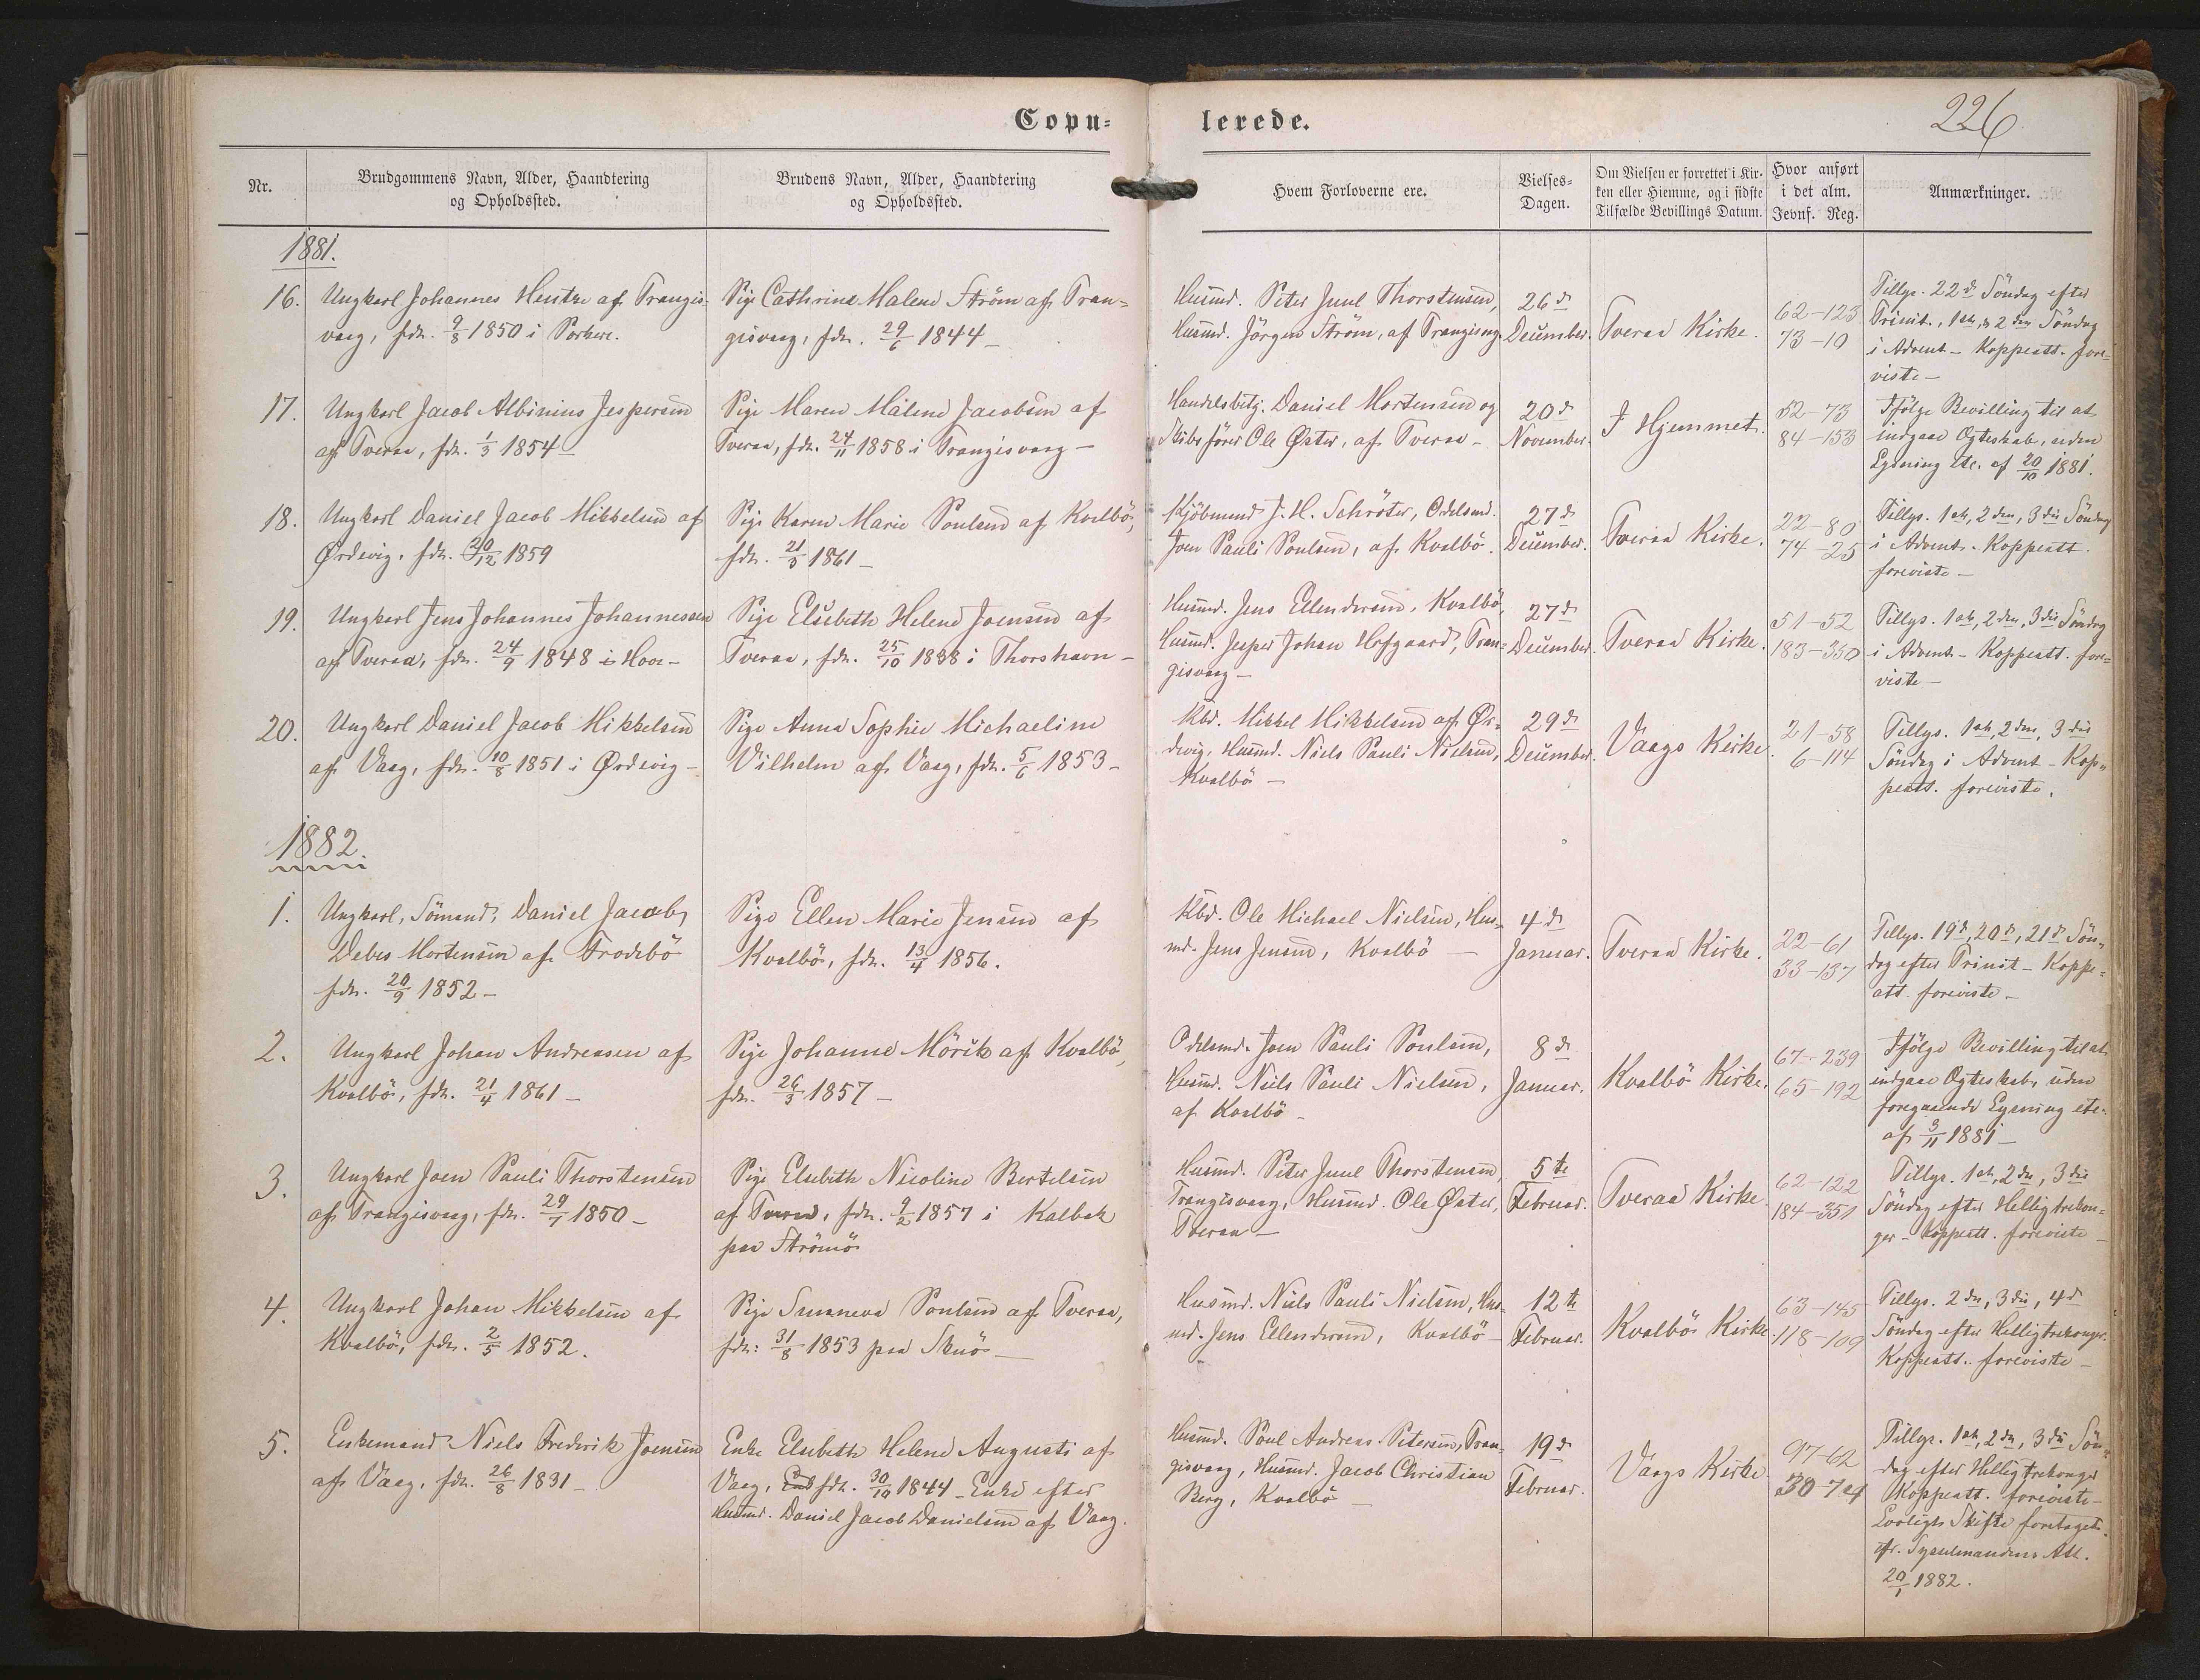 Copu-
lerede.
226
Nr.
Brudgommens Navn, Alder, Haandtering
og Opholdssted.
Brudens Navn, Alder, Haandtering
og Opholdssted.
Hvem Forloverne ere.
Vielses-
Dagen.
Om Vielsen er forrettet i Kir-
ken eller Hjemme, og i sidste
Tilfælde Bevillings Datum.
Hvor anført
i det alm.
Jevnf. Reg.
Anmærkninger.
1881.
16.
Ungkarl Johannes Hentze af Trangis-
vaag, fdt. 9/8 1850 i Porkere.
Pige Cathrine Malene Ström af Tran-
gisvaag, fdt. 29/6 1844 –
Husmd. Peter Juul Thorstensen,
Husmd. Jörgen Ström, af Trangisvg.
26d
December.
Tveraa Kirke.
62–125
73–10
Tillys. 22d Söndag efter
Trinit., 1ste, & 2den Söndag
i Advent – Koppeatt. fore-
viste –
17.
Ungkarl Jacob Albinius Jespersen
af Tveraa, fdt. 1/3 1854 –
Pige Maren Malene Jacobsen af
Tveraa, fdt. 24/11 1858 i Trangisvaag –
Handelsbetj. Daniel Mortensen og
Skibsförer Ole Øster, af Tveraa –
20d
November.
I Hjemmet.
52–73
84–153
Ifölge Bevilling til at
indgaae Ægteskab, uden
Lysning etc. af 20/10 1881.
18.
Ungkarl Daniel Jacob Mikkelsen af
Ørdevig, fdt. 20/12 1859
Pige Karen Marie Poulsen af Kvalbö,
fdt. 21/5 1861 –
Kjöbmand J. H. Schröter, Odelsmd.
Joen Pauli Poulsen, af Kvalbö.
27d
December.
Tveraa Kirke.
22–80
74–25
Tillys. 1ste, 2den, 3die Söndag
i Advent. Koppeatt.
foreviste –
19.
Ungkarl Jens Johannes Johannessen
af Tveraa, fdt. 24/9 1848 i Hov –
Pige Elsebeth Helene Joensen af
Tveraa, fdt. 25/10 1838 i Thorshavn –
Husmd. Jens Ellendersen, Kvalbö,
Husmd. Jesper Johan Hofgaard, Tran-
gisvaag –
27d
December.
Tveraa Kirke.
51–52
183–350
Tillys. 1ste, 2den, 3die Söndag
i Advent – Koppeatt. fore-
viste –
20.
Ungkarl Daniel Jacob Mikkelsen
af Vaag, fdt. 10/8 1851 i Ørdevig –
Pige Anna Sophie Michaeline
Vilhelm af Vaag, fdt. 5/6 1853 –
Kbd. Mikkel Mikkelsen af Ør-
devig, Husmd. Niels Pauli Nielsen,
Kvalbö –
29d
December.
Vaags Kirke.
21–58
6–114
Tillys. 1ste, 2den, 3die
Söndag i Advent – Kop-
peatt. foreviste.
1882.
1.
Ungkarl, Sömand, Daniel Jacob
Debes Mortensen af Frodebö
fdt. 20/9 1852 –
Pige Ellen Marie Jensen af
Kvalbö, fdt. 13/4 1856.
Kbd. Ole Michael Nielsen, Hus-
md. Jens Jensen, Kvalbö –
4d
Januar.
Tveraa Kirke.
22–61
33–137
Tillys. 19d, 20d, 21d Sön-
dag efter Trinit – Koppe-
att. foreviste –
2.
Ungkarl Johan Andreasen af
Kvalbö, fdt. 21/4 1861 –
Pige Johanne Mörik af Kvalbö,
fdt. 26/3 1857 –
Odelsmd. Joen Pauli Poulsen,
Husmd. Niels Pauli Nielsen,
af Kvalbö –
8d
Januar.
Kvalbö Kirke.
67–239
65–192
Ifölge Bevilling til at
indgaae Ægteskab, uden
foregaaende Lysning etc.
af 3/11 1881 –
3.
Ungkarl Joen Pauli Thorstensen
af Trangisvaag, fdt. 29/7 1850 –
Pige Elsebeth Nicoline Bertelsen
af Tveraa, fdt. 9/2 1857 i Kalbak
paa Strömö
Husmd. Peter Juul Thorstensen,
Trangisvaag, Husmd. Ole Øster,
Tveraa –
5te
Februar.
Tveraa Kirke
62–122
184–351
Tillys. 1ste, 2den, 3die
Söndag efter Helligtrekon-
ger – Koppeatt. foreviste –
4.
Ungkarl Johan Mikkelsen af
Kvalbö, fdt. 2/5 1852.
Pige Sunneva Poulsen af Tveraa,
fdt: 31/8 1853 paa Skuö –
Husmd. Niels Pauli Nielsen, Hus-
md. Jens Ellendersen, Kvalbö –
12te
Februar.
Kvalbö Kirke.
63–145
118–109
Tillys. 2den, 3die, 4d
Söndag efter Helligtrekonger.
Koppeatt. foreviste –
5.
Enkemand Niels Frederik Joensen
af Vaag, fdt. 26/8 1831 –
Enke Elsebeth Helene Augusti af
Vaag, fdt. 30/10 1844 – Enke efter
Husmd. Daniel Jacob Danielsen af Vaag.
Husmd. Poul Andreas Petersen, Tran-
gisvaag, Husmd. Jacob Christian
Berg, Kvalbö –
19d
Februar.
Vaags Kirke
97–62
30–74
Tillys. 1ste, 2den, 3die Sön-
dag efter Helligtrekonger
Koppeatt. foreviste –
Lovligt Skifte foretaget
cfr. Sysselmandens Att.
20/1 1882.